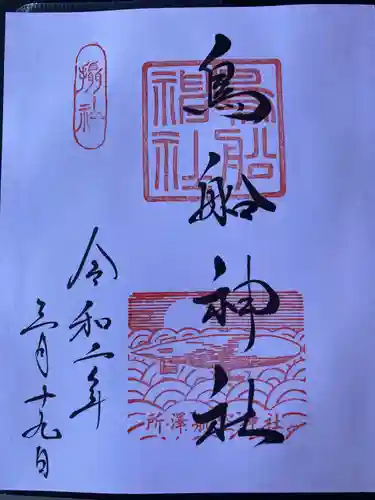 鳥船神社
鳥船神社
摂社
令和二年
三月十九日
所澤航空神社